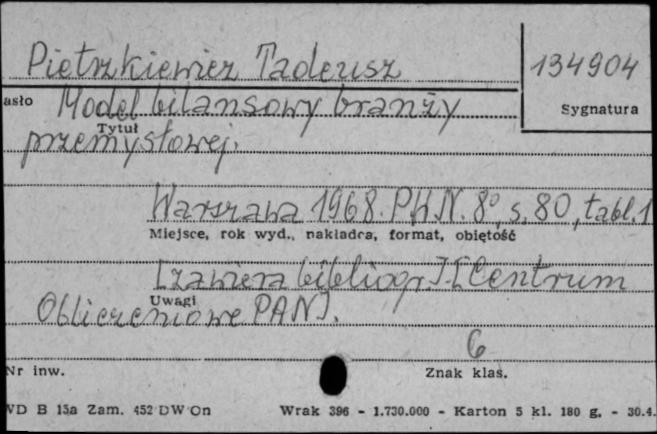 Pietrzkiewicz Tadeusz
134904
asło
Model bilansowy branży
Sygnatura
Tytuł
przemysłowej.
Warszawa 1968. PWN. 8°, s. 80, tabl. 1
Miejsce, rok wyd., nakładca, format, objętość
[zawiera bibliogr.]. [Centrum
Uwagi
Obliczeniowe PAN].
6
Nr inw.
Znak klas.
WD B 15a Zam. 452 DW On Wrak 396 - 1.730.000 - Karton 5 kl. 180 g. - 30.4.